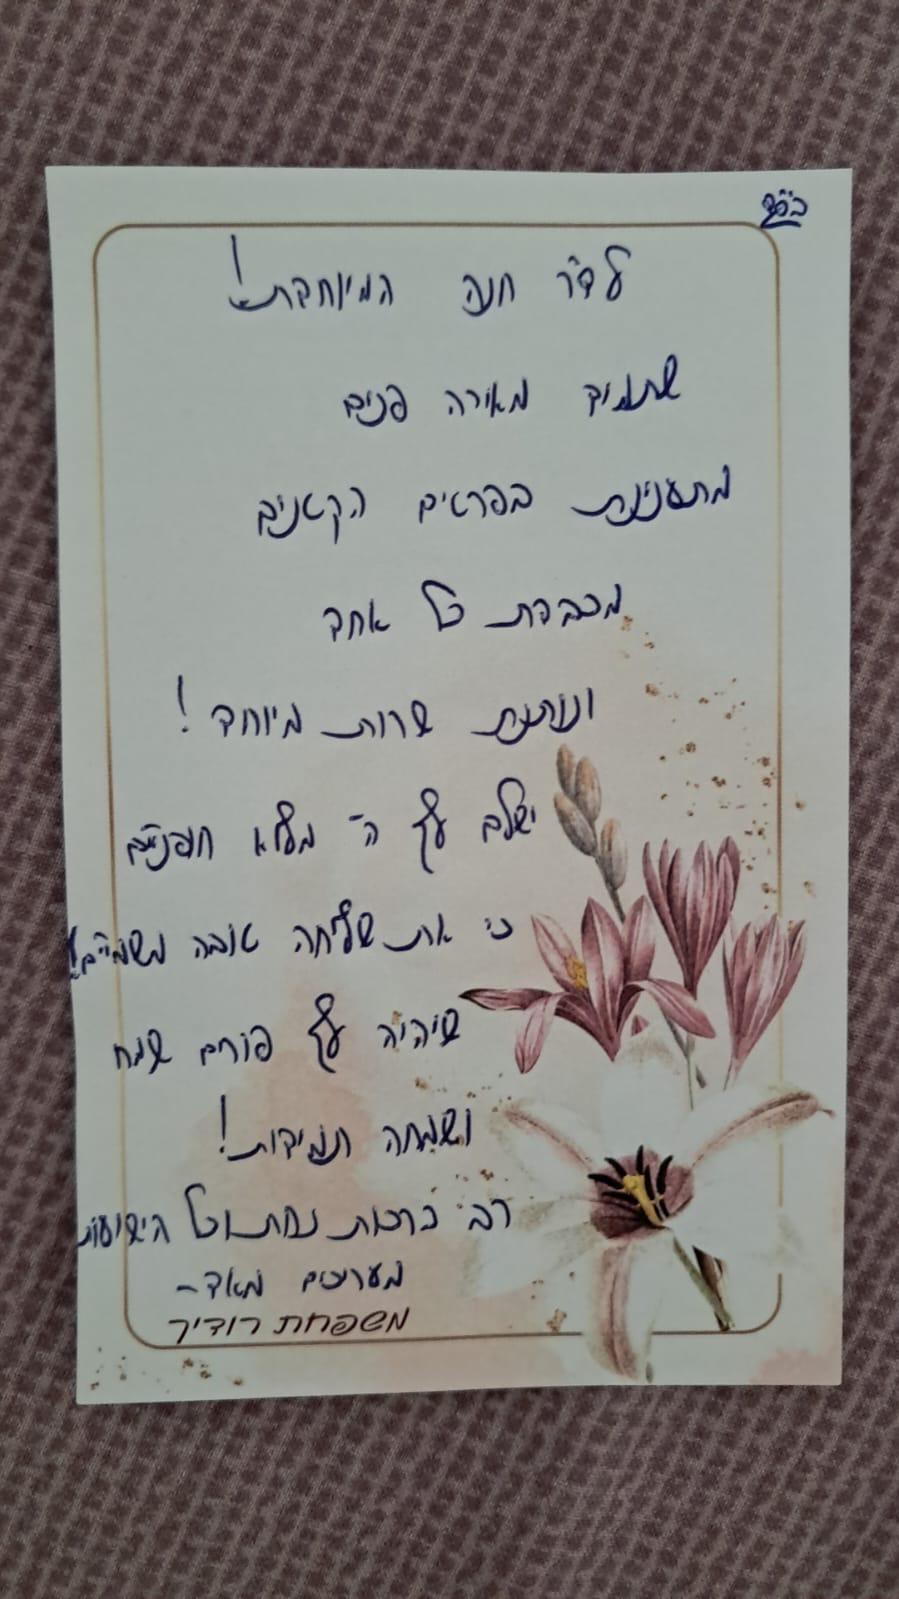 ב"ה
לד"ר חנה המיוחדת!
שתמיד מאירה פנים
מתענינת בפרטים הקטנים
מכבדת כל אחד
ונותנת שרות מיוחד!
ישלם לך ה' מלא חופניים
כי את שליחה טובה משמיים!
שיהיה לך פורים שמח
ושמחה תמידית!
רב ברכות נחת וכל הישועות
מעריכים מאד -
משפחת רודיך